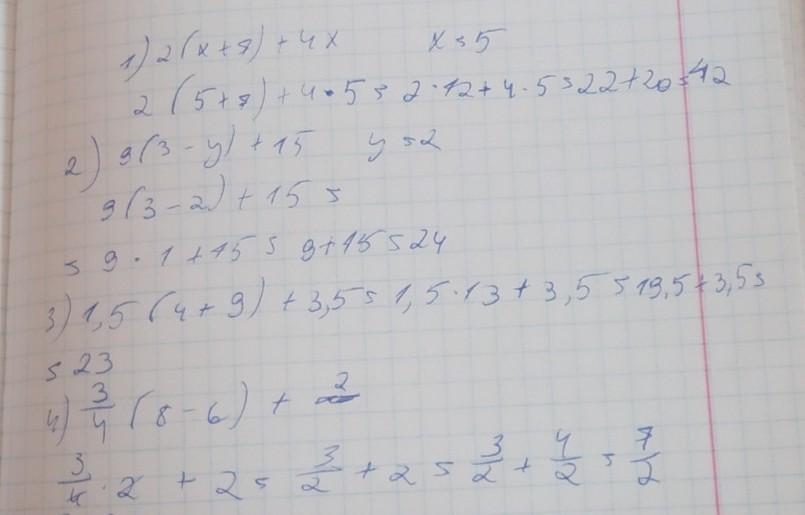 1) 2(x+7)+4x x=5
2(5+7)+4·5=2·12+4·5=22+20=42
2) 9(3-y)+15 y=2
9(3-2)+15=
=9·1+15=9+15=24
3) 1,5(4+9)+3,5=1,5·13+3,5=19,5+3,5=
=23
4) 3/4 (8-6) + 2
3/4 · 2 + 2 = 3/2 + 2 = 3/2 + 4/2 = 7/2